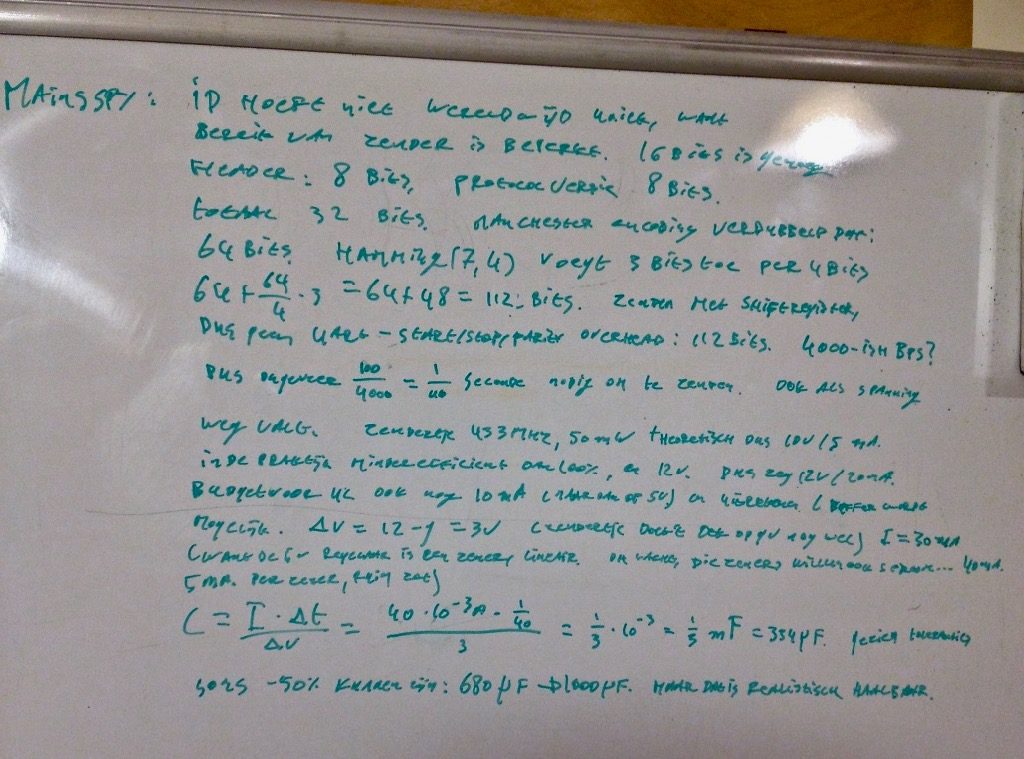 MAINSSPY: ID HOEFT NIET WERELDWIJD UNIEK, WANT
BEREIK VAN ZENDER IS BEPERKT. 16 BITS IS genoeg
HEADER: 8 BITS, PROTOCOL VERSIE 8 BITS.
TOTAAL 32 BITS. MANCHESTER encoding VERDUBBELT DAT:
64 BITS. HAMMING(7,4) VOEGT 3 BITS TOE PER 4 BITS
64 + 64/4 · 3 = 64 + 48 = 112 BITS. ZENDEN MET SHIFTREGISTER,
DUS geen UART - START/STOP/PARITY OVERHEAD: 112 BITS. 4000-ISH BPS?
DUS ongeveer 100/4000 = 1/40 Seconde nodig om te zenden. OOK ALS SPANNING
weg VALT. ZENDERTJE 433 MHZ, 50 mW THEORETISCH DUS 10V/5 mA.
IN DE PRAKTIJK MINDER EFFICIENT DAN 100%, en 12V. DUS zeg 12V/20mA.
BUDGET VOOR UC OOK nog 10 mA (MAAR DAN OP 5V) en
MOEILIJK. ΔV = 12 - 9 = 3V (ZENDERTJE DOET'T OOK OP 9V nog wel) I = 30 mA
(WANT DE 5V REGELAAR IS EEN ZENER, LINEAIR. OH WACHT, DIE ZENERS WILLEN OOK STROOM... 40mA.
5 MA. PER ZENER,
C = I · Δt / ΔV = 40 · 10⁻³A · 1/40 / 3 = 1/3 · 10⁻³ = 1/3 mF = 334 µF.
SOMS -50% KUNNEN ZIJN: 680 µF → 1000 µF. MAAR DAT IS REALISTISCH HAALBAAR.